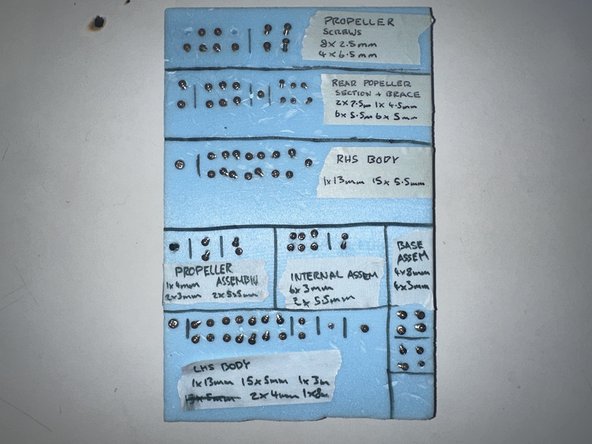 PROPELLER
SCREWS
8 x 2.5mm
4 x 6.5mm
REAR POPELLER
SECTION + BRACE
2x7.5m 1x4.5mm
6x5.5m 6x5mm
RHS BODY
1x13mm 15x5.5mm
PROPELLER
ASSEMBLY
1x4mm
2x3mm 2x5.5mm
INTERNAL ASSEM
6x3mm
2x5.5mm
BASE
ASSEM
4x8mm
4x3mm
LHS BODY
1x13mm 15x5mm 1x3m
2x4mm 1x8m